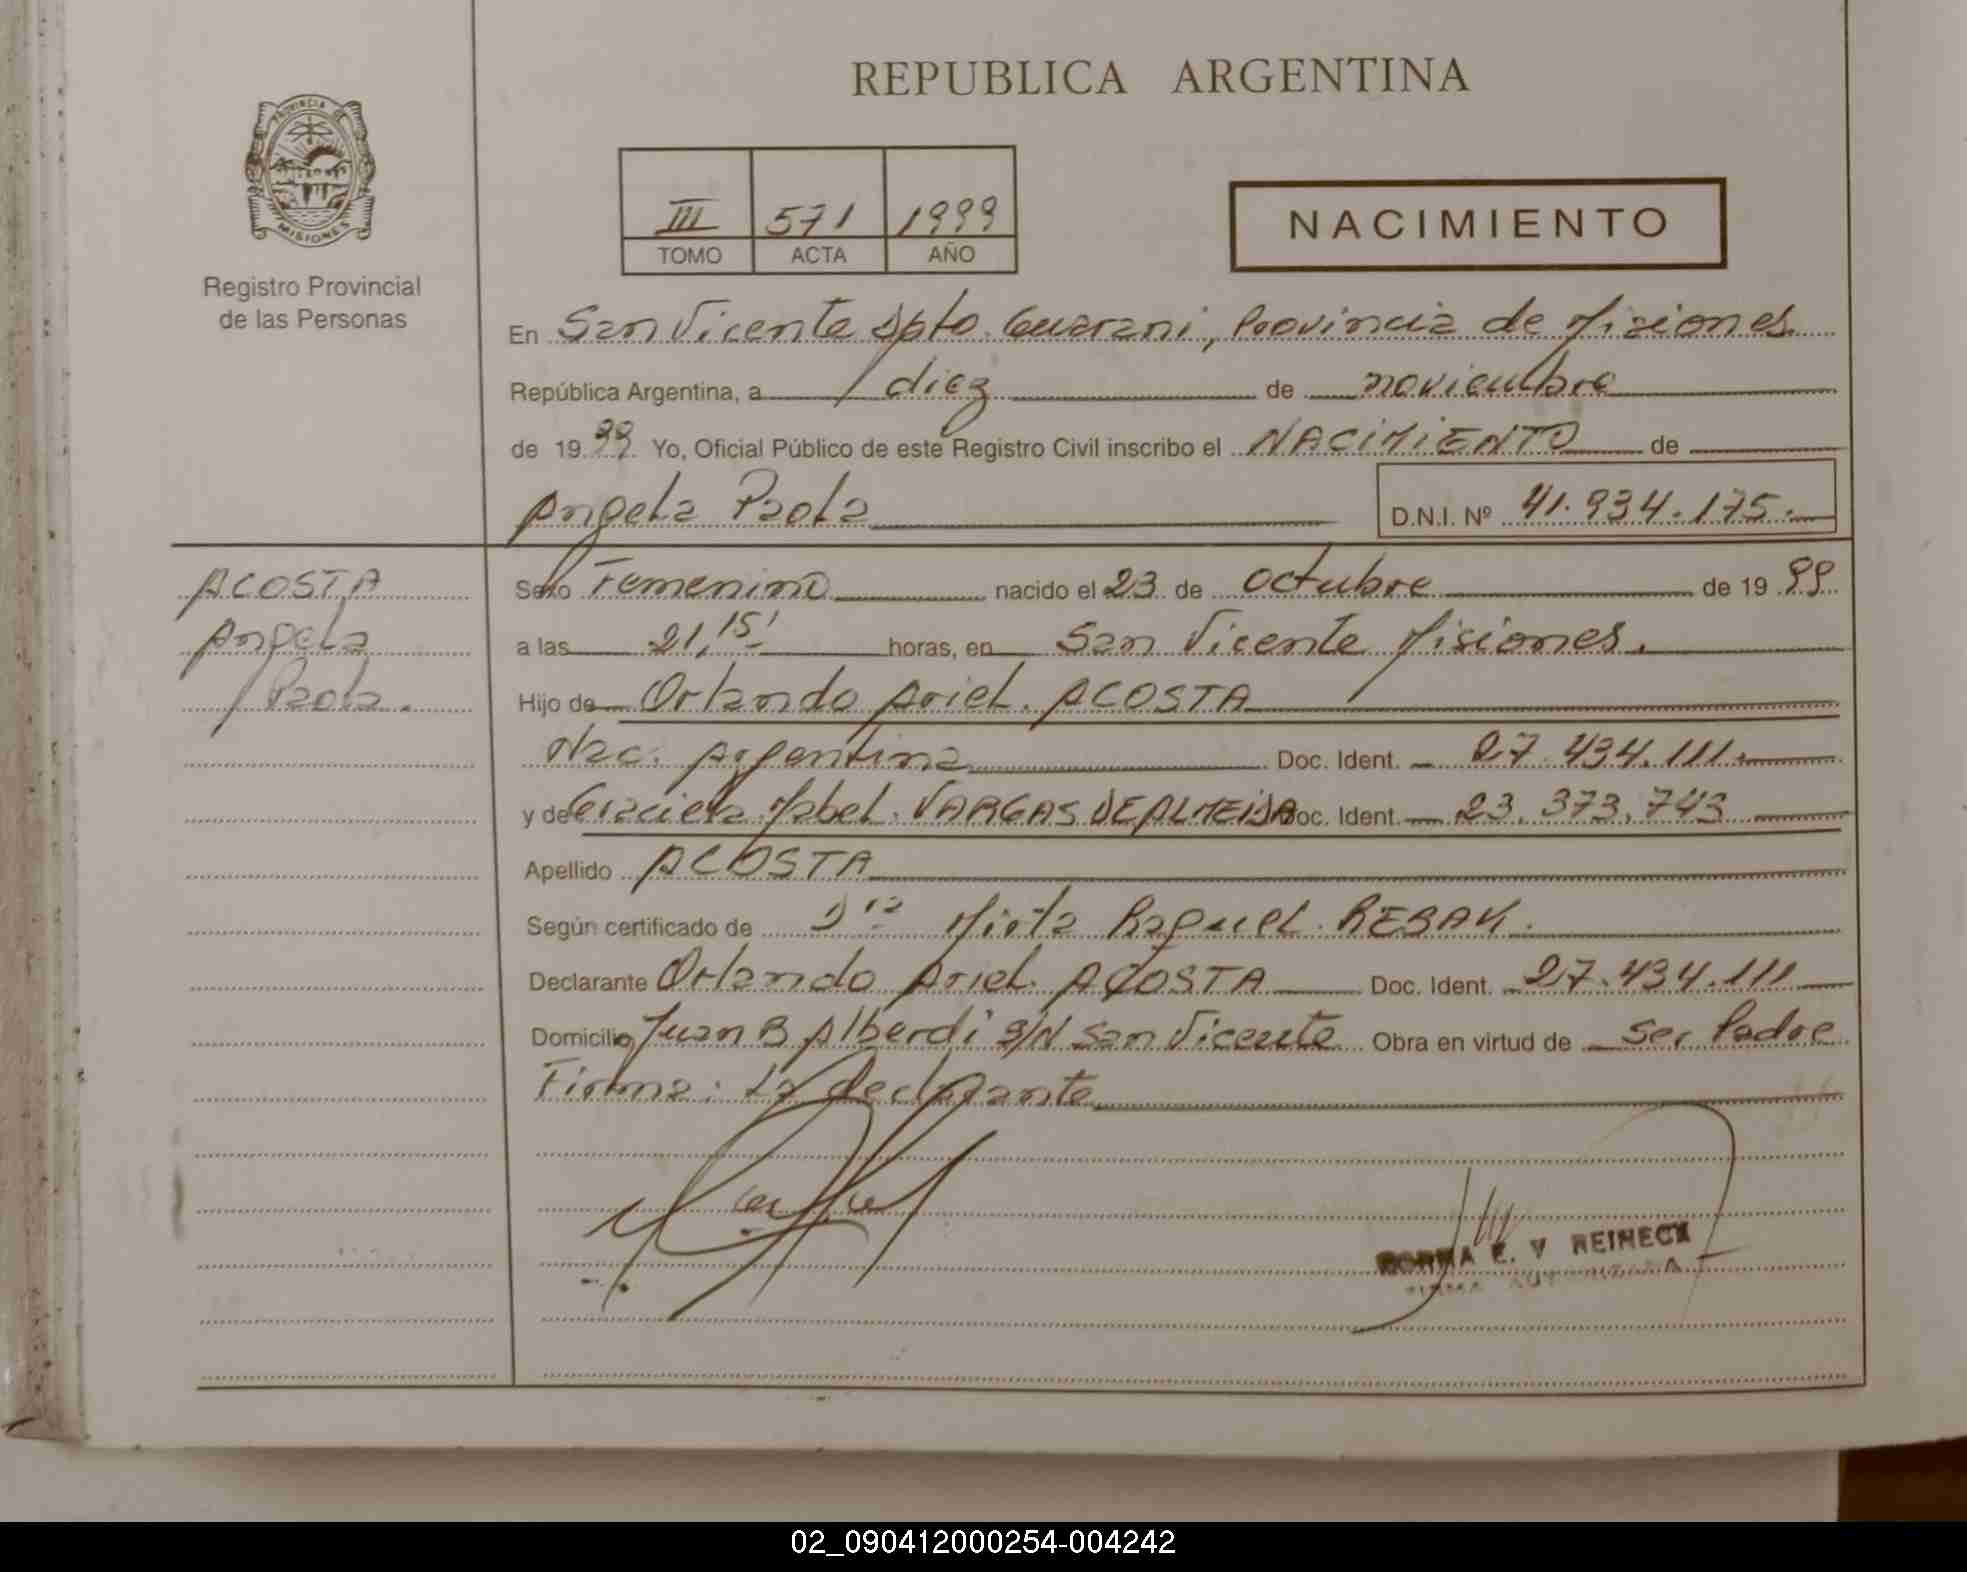 REPUBLICA ARGENTINA
PROVINCIA DE
MISIONES
Registro Provincial
de las Personas
III 571 1999
TOMO ACTA AÑO
NACIMIENTO
En San Vicente Dpto. Guarani, Provincia de Misiones
República Argentina, a diez de noviembre
de 1999 Yo, Oficial Público de este Registro Civil inscribo el NACIMIENTO de
Angela Paola D.N.I. Nº 41.934.175.
ACOSTA
Angela
Paola.
Sexo Femenino nacido el 23 de octubre de 1999
a las 21,15' horas, en San Vicente Misiones.
Hijo de Orlando Ariel. ACOSTA
Nac. Argentina Doc. Ident. 27.434.111.
y de Graciela Mabel. VARGAS DE ALMEIDA Doc. Ident. 23.373.743
Apellido ACOSTA
Según certificado de Dra Mirta Raquel.
Declarante Orlando Ariel. ACOSTA Doc. Ident. 27.434.111
Domicilio Juan B Alberdi S/N San Vicente Obra en virtud de Ser Padre
Firma: declarante
E. V REINECK
FIRMA AUTORIZADA
02_090412000254-004242